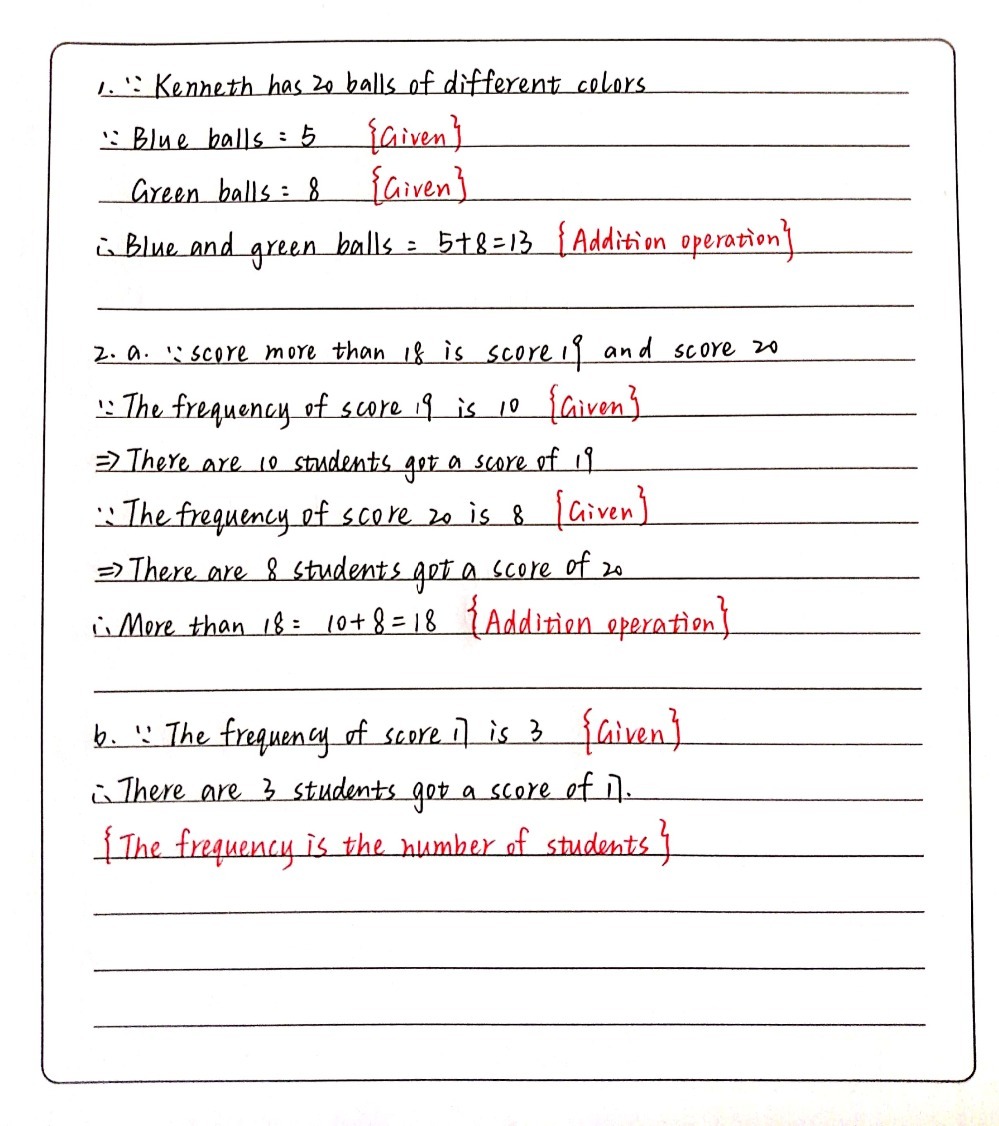 1. ∵ Kenneth has 20 balls of different colors
∵ Blue balls = 5 {Given}
Green balls = 8 {Given}
∴ Blue and green balls = 5+8=13 {Addition operation}
2. a. ∵ score more than 18 is score 19 and score 20
∵ The frequency of score 19 is 10 {Given}
⇒ There are 10 students got a score of 19
∵ The frequency of score 20 is 8 {Given}
⇒ There are 8 students got a score of 20
∴ More than 18 = 10+8=18 {Addition operation}
b. ∵ The frequency of score 17 is 3 {Given}
∴ There are 3 students got a score of 17.
{The frequency is the number of students}